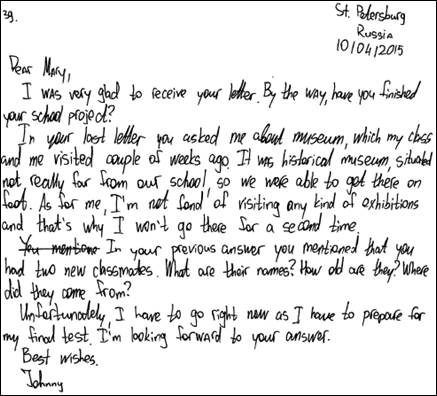 39.
St. Petersburg
Russia
10/04/2015
Dear Mary,
I was very glad to receive your letter. By the way, have you finished
your school project?
In your last letter you asked me about museum, which my class
and me visited couple of weeks ago. It was historical museum, situated
not really far from our school, so we were able to get there on
foot. As for me, I'm not fond of visiting any kind of exhibitions
and that's why I won't go there for a second time.
You mentione In your previous answer you mentioned that you
had two new classmates. What are their names? How old are they? Where
did they come from?
Unfortunately, I have to go right now as I have to prepare for
my final test. I'm looking forward to your answer.
Best wishes.
Johnny